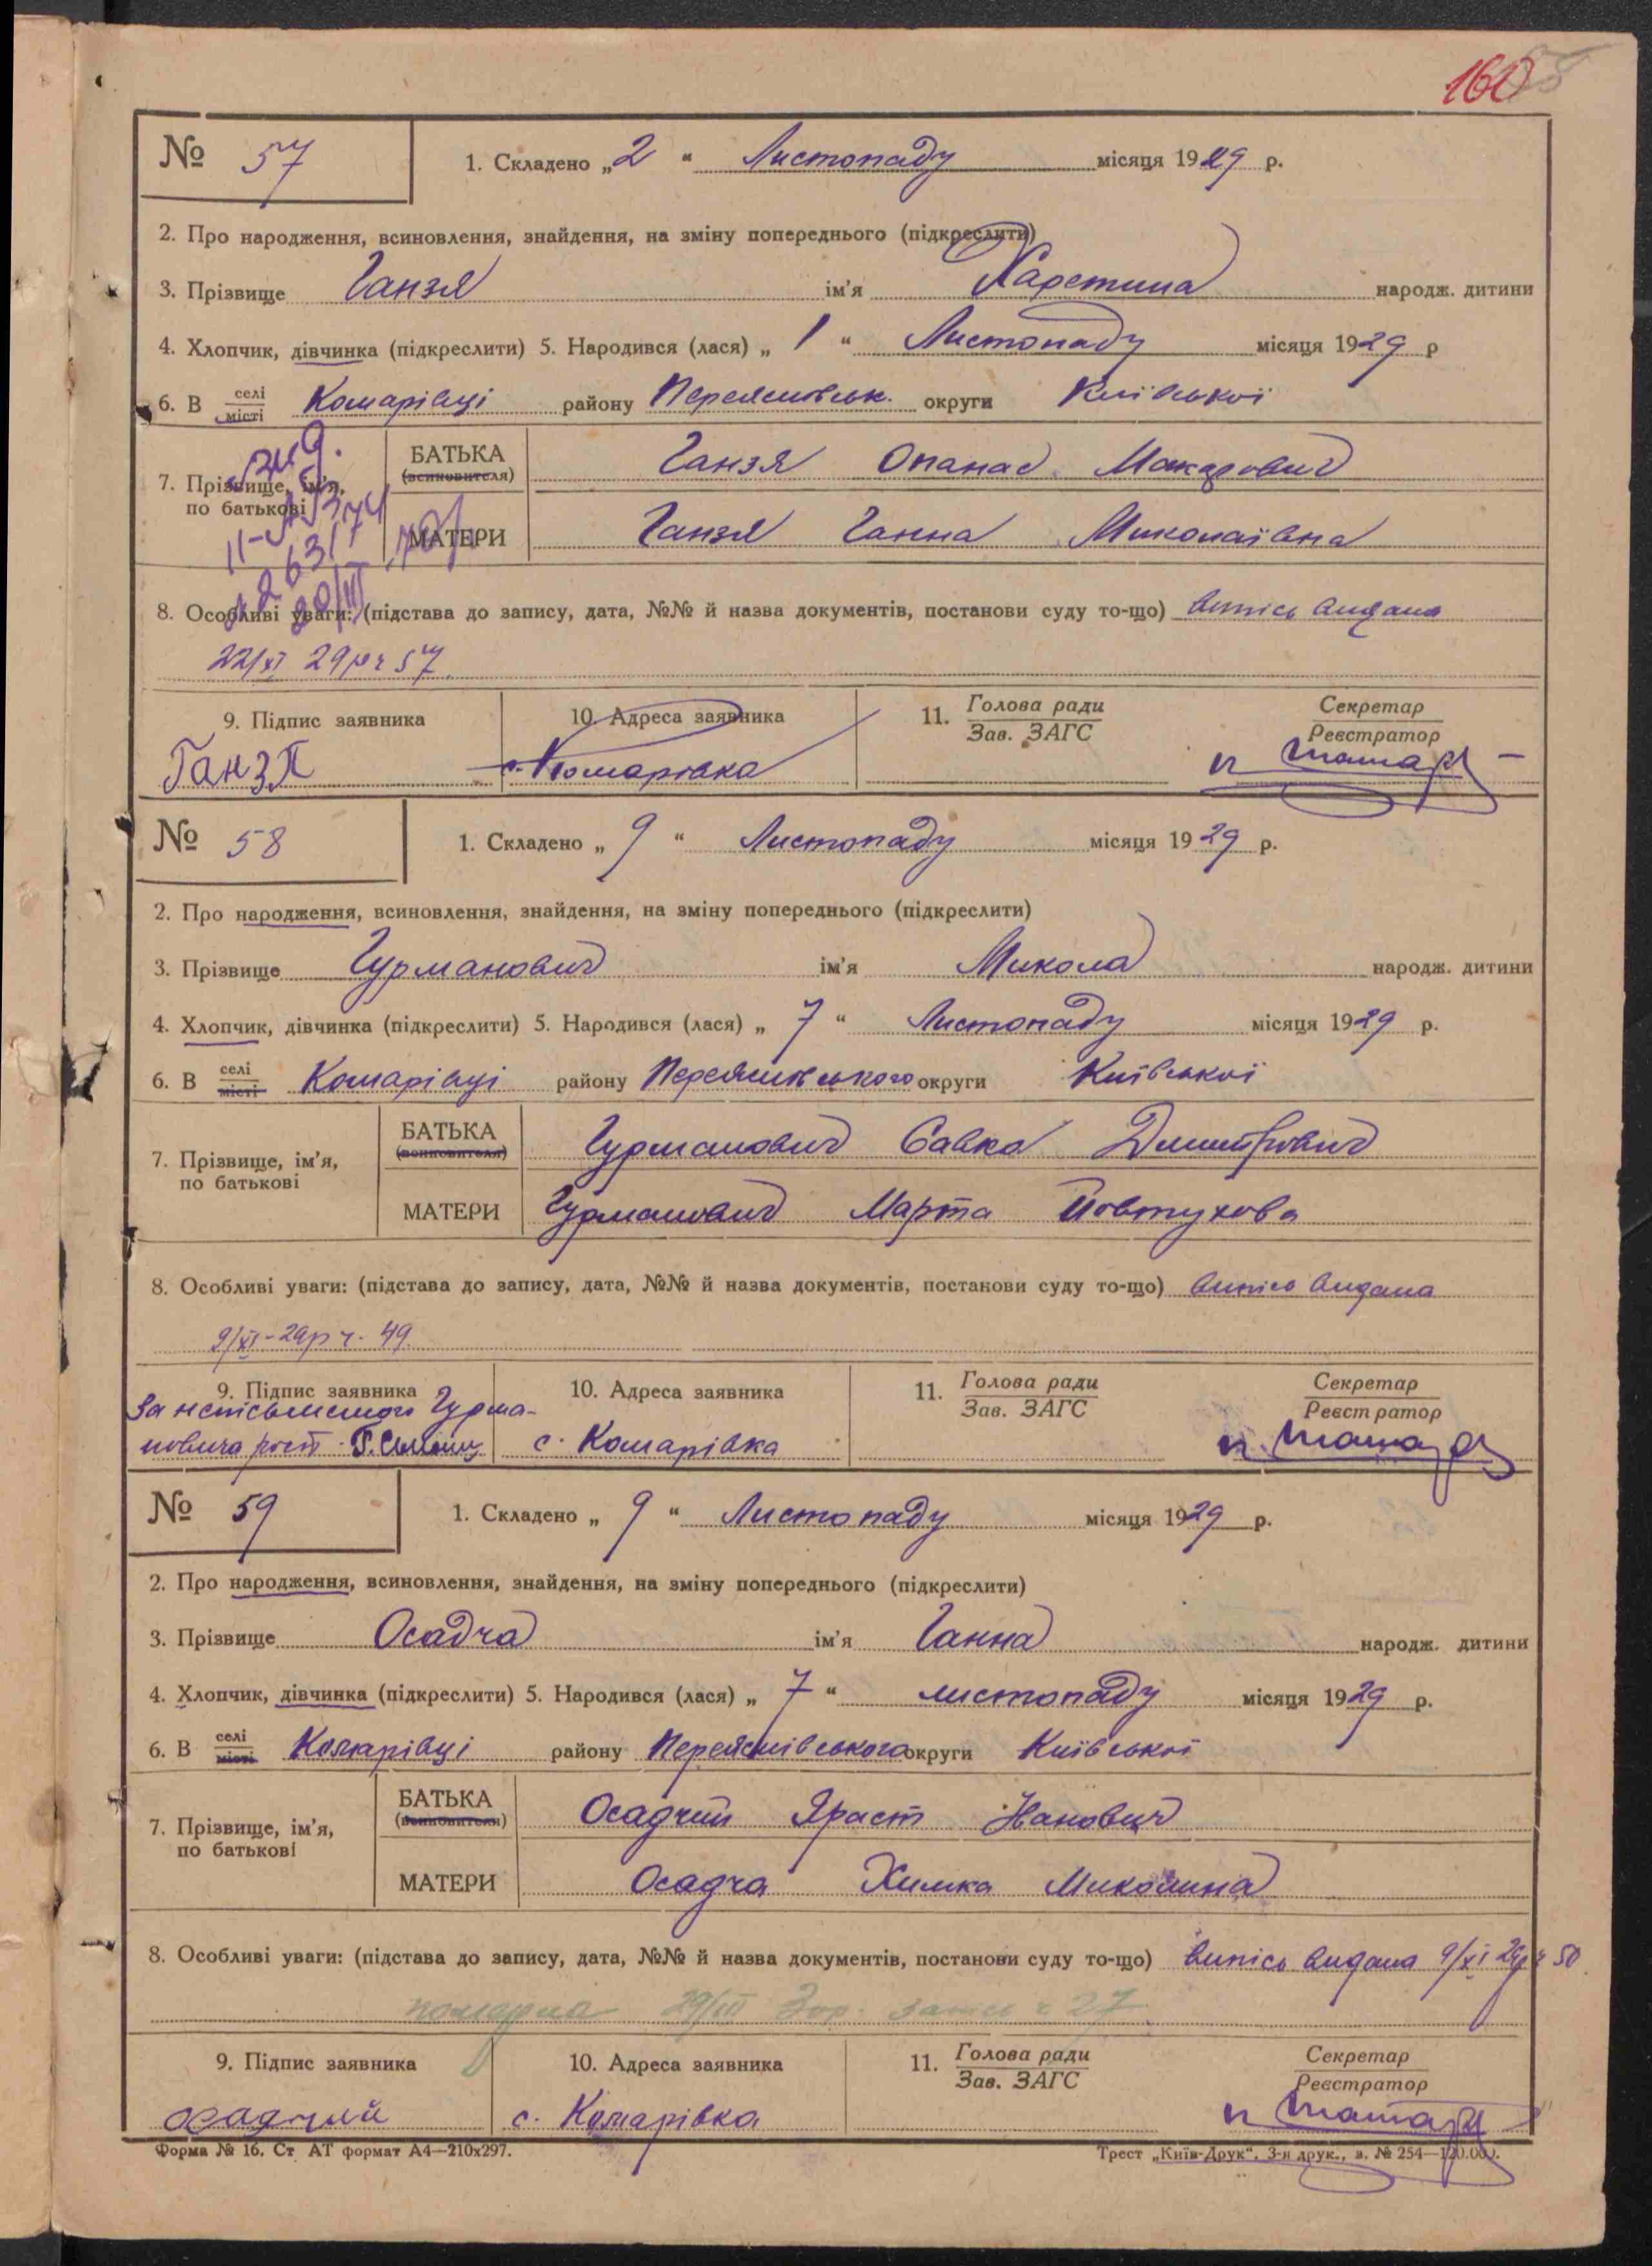 160
№ 57
1. Складено „2“ Листопаду місяця 1929 р.
2. Про народження, всиновлення, знайдення, на зміну попереднього (підкреслити)
3. Прізвище Ганзя ім'я Харетина народж. дитини
4. Хлопчик, дівчинка (підкреслити) 5. Народився (лася) „1“ Листопаду місяця 1929 р
6. В селі місті Комарівці району Переяславськ. округи Київської
7. Прізвище, ім'я, по батькові
БАТЬКА (всиновителя) Ганзя Опанас Макарович
МАТЕРИ Ганзя Ганна Миколаївна
8. Особливі уваги: (підстава до запису, дата, №№ й назва документів, постанови суду то-що) випись видана
22/XI 29р ч 57.
9. Підпис заявника 10. Адреса заявника 11. Голова ради Зав. ЗАГС Секретар Реєстратор
Ганзя с. Комарівка
№ 58
1. Складено „9“ Листопаду місяця 1929 р.
2. Про народження, всиновлення, знайдення, на зміну попереднього (підкреслити)
3. Прізвище Гурманович ім'я Микола народж. дитини
4. Хлопчик, дівчинка (підкреслити) 5. Народився (лася) „7“ Листопаду місяця 1929 р.
6. В селі місті Комарівці району Переяславського округи Київської
7. Прізвище, ім'я, по батькові
БАТЬКА (всиновителя) Гурманович Савка Димитрович
МАТЕРИ Гурманович Марта Йовтухова
8. Особливі уваги: (підстава до запису, дата, №№ й назва документів, постанови суду то-що) випись видана
9/XI-29р ч. 49.
9. Підпис заявника 10. Адреса заявника 11. Голова ради Зав. ЗАГС Секретар Реєстратор
За неписьменого Гурма-
новича розп. с. Комарівка
№ 59
1. Складено „9“ Листопаду місяця 1929 р.
2. Про народження, всиновлення, знайдення, на зміну попереднього (підкреслити)
3. Прізвище Осадча ім'я Ганна народж. дитини
4. Хлопчик, дівчинка (підкреслити) 5. Народився (лася) „7“ листопаду місяця 1929 р.
6. В селі місті Комарівці району Переяславського округи Київської
7. Прізвище, ім'я, по батькові
БАТЬКА (всиновителя) Осадчий Яраст Іванович
МАТЕРИ Осадча Химка Миколина
8. Особливі уваги: (підстава до запису, дата, №№ й назва документів, постанови суду то-що) випись видана 9/XI 29р ч 50
померла 29/III 30р. запис ч 27
9. Підпис заявника 10. Адреса заявника 11. Голова ради Зав. ЗАГС Секретар Реєстратор
осадчий с. Комарівка
Форма № 16. Ст АТ формат А4—210х297. Трест „Київ-Друк“, 3-я друк., з. № 254—120.000.